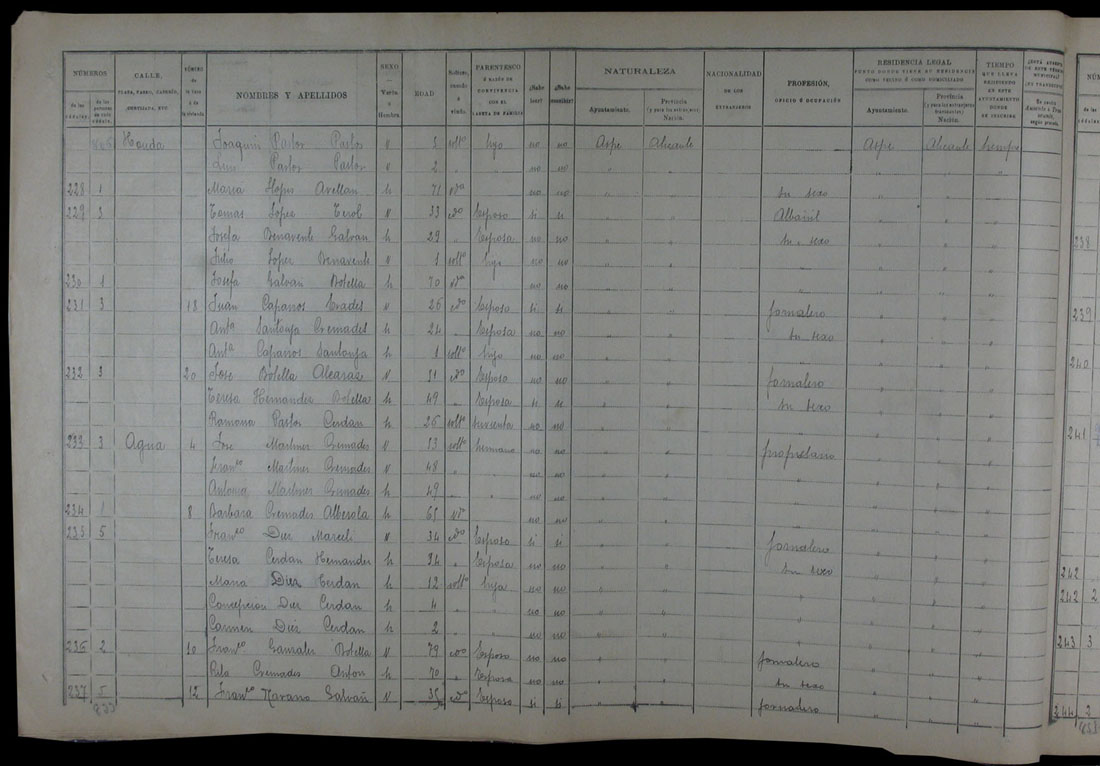 NÚMEROS
de las cédulas.
de las personas en cada cédula.
CALLE,
PLAZA, PASEO, CASERÍO,
CORTIJADA, ETC.
NÚMERO de la casa ó de la vivienda
NOMBRES Y APELLIDOS
SEXO
Varón ó Hembra
EDAD
Soltero, casado ó viudo.
PARENTESCO
Ó RAZÓN DE CONVIVENCIA CON EL CABEZA DE FAMILIA
¿Sabe leer?
¿Sabe escribir?
NATURALEZA
Ayuntamiento.
Provincia (y para los extranjeros) Nación.
NACIONALIDAD
DE LOS EXTRANJEROS
PROFESIÓN,
OFICIO Ó OCUPACIÓN
RESIDENCIA LEGAL
PUNTO DONDE TIENE SU RESIDENCIA COMO VECINO Ó COMO DOMICILIADO
Ayuntamiento.
Provincia (y para los extranjeros transeuntes) Nación.
TIEMPO
QUE LLEVA RESIDIENDO EN ESTE AYUNTAMIENTO DONDE SE INSCRIBE
Honda Joaquin Pastor Pastor v 5 soltº hijo no no Aspe Alicante Aspe Alicante
Luis Pastor Pastor v 2 " " no no " " " " "
228 1 Maria Llopis Avellan h 71 vda no no " " su sexo " " "
229 3 Tomas Lopez Terol v 33 cdo Esposo si si " " Albañil " " "
Josefa Benavente Galvañ h 29 " Esposa no no " " su sexo " " "
Julio Lopez Benavente v 1 soltº hijo no no " " " " "
230 1 Josefa Galvañ Botella h 70 vda no no " " " " "
231 3 18 Juan Caparros v 26 cdo Esposo si si " " jornalero " " "
Antª Santonja Cremades h 24 " Esposa no no " " su sexo " " "
Antª Caparros Santonja h 1 soltº hija no no " " " " "
232 3 20 Jose Botella Alcaraz v 51 cdo Esposo no no " " jornalero " " "
Teresa Hernandez Botella h 49 " Esposa si si " " su sexo " " "
Ramona Pastor Cerdan h 26 soltª sirvienta no no " " " " "
233 3 Agua 4 Jose Martinez Cremades v 53 soltº hermano no no " " propietario " " "
Franco Martinez Cremades v 48 " " no no " " " " "
Antonia Martinez Cremades h 49 " " no no " " " " "
234 1 8 Barbara Cremades Alberola h 65 vda no no " " " " "
235 5 Franco Diez Marceli v 34 cdo Esposo si si " " jornalero " " "
Teresa Cerdan Hernandez h 34 " Esposa no no " " su sexo " " "
Maria Diez Cerdan h 12 soltª hija no no " " " " "
Concepcion Diez Cerdan h 4 " " no no " " " " "
Carmen Diez Cerdan h 2 " " no no " " " " "
236 2 10 Franco Gonzalez Botella v 79 cdo Esposo no no " " jornalero " " "
Rita Cremades Anton h 70 " Esposa no no " " su sexo " " "
237 5 12 Franco Navarro Galvañ v 35 cdo Esposo si si " " jornalero " " "
238
239
240
241
242
242 2
243 3
244 2